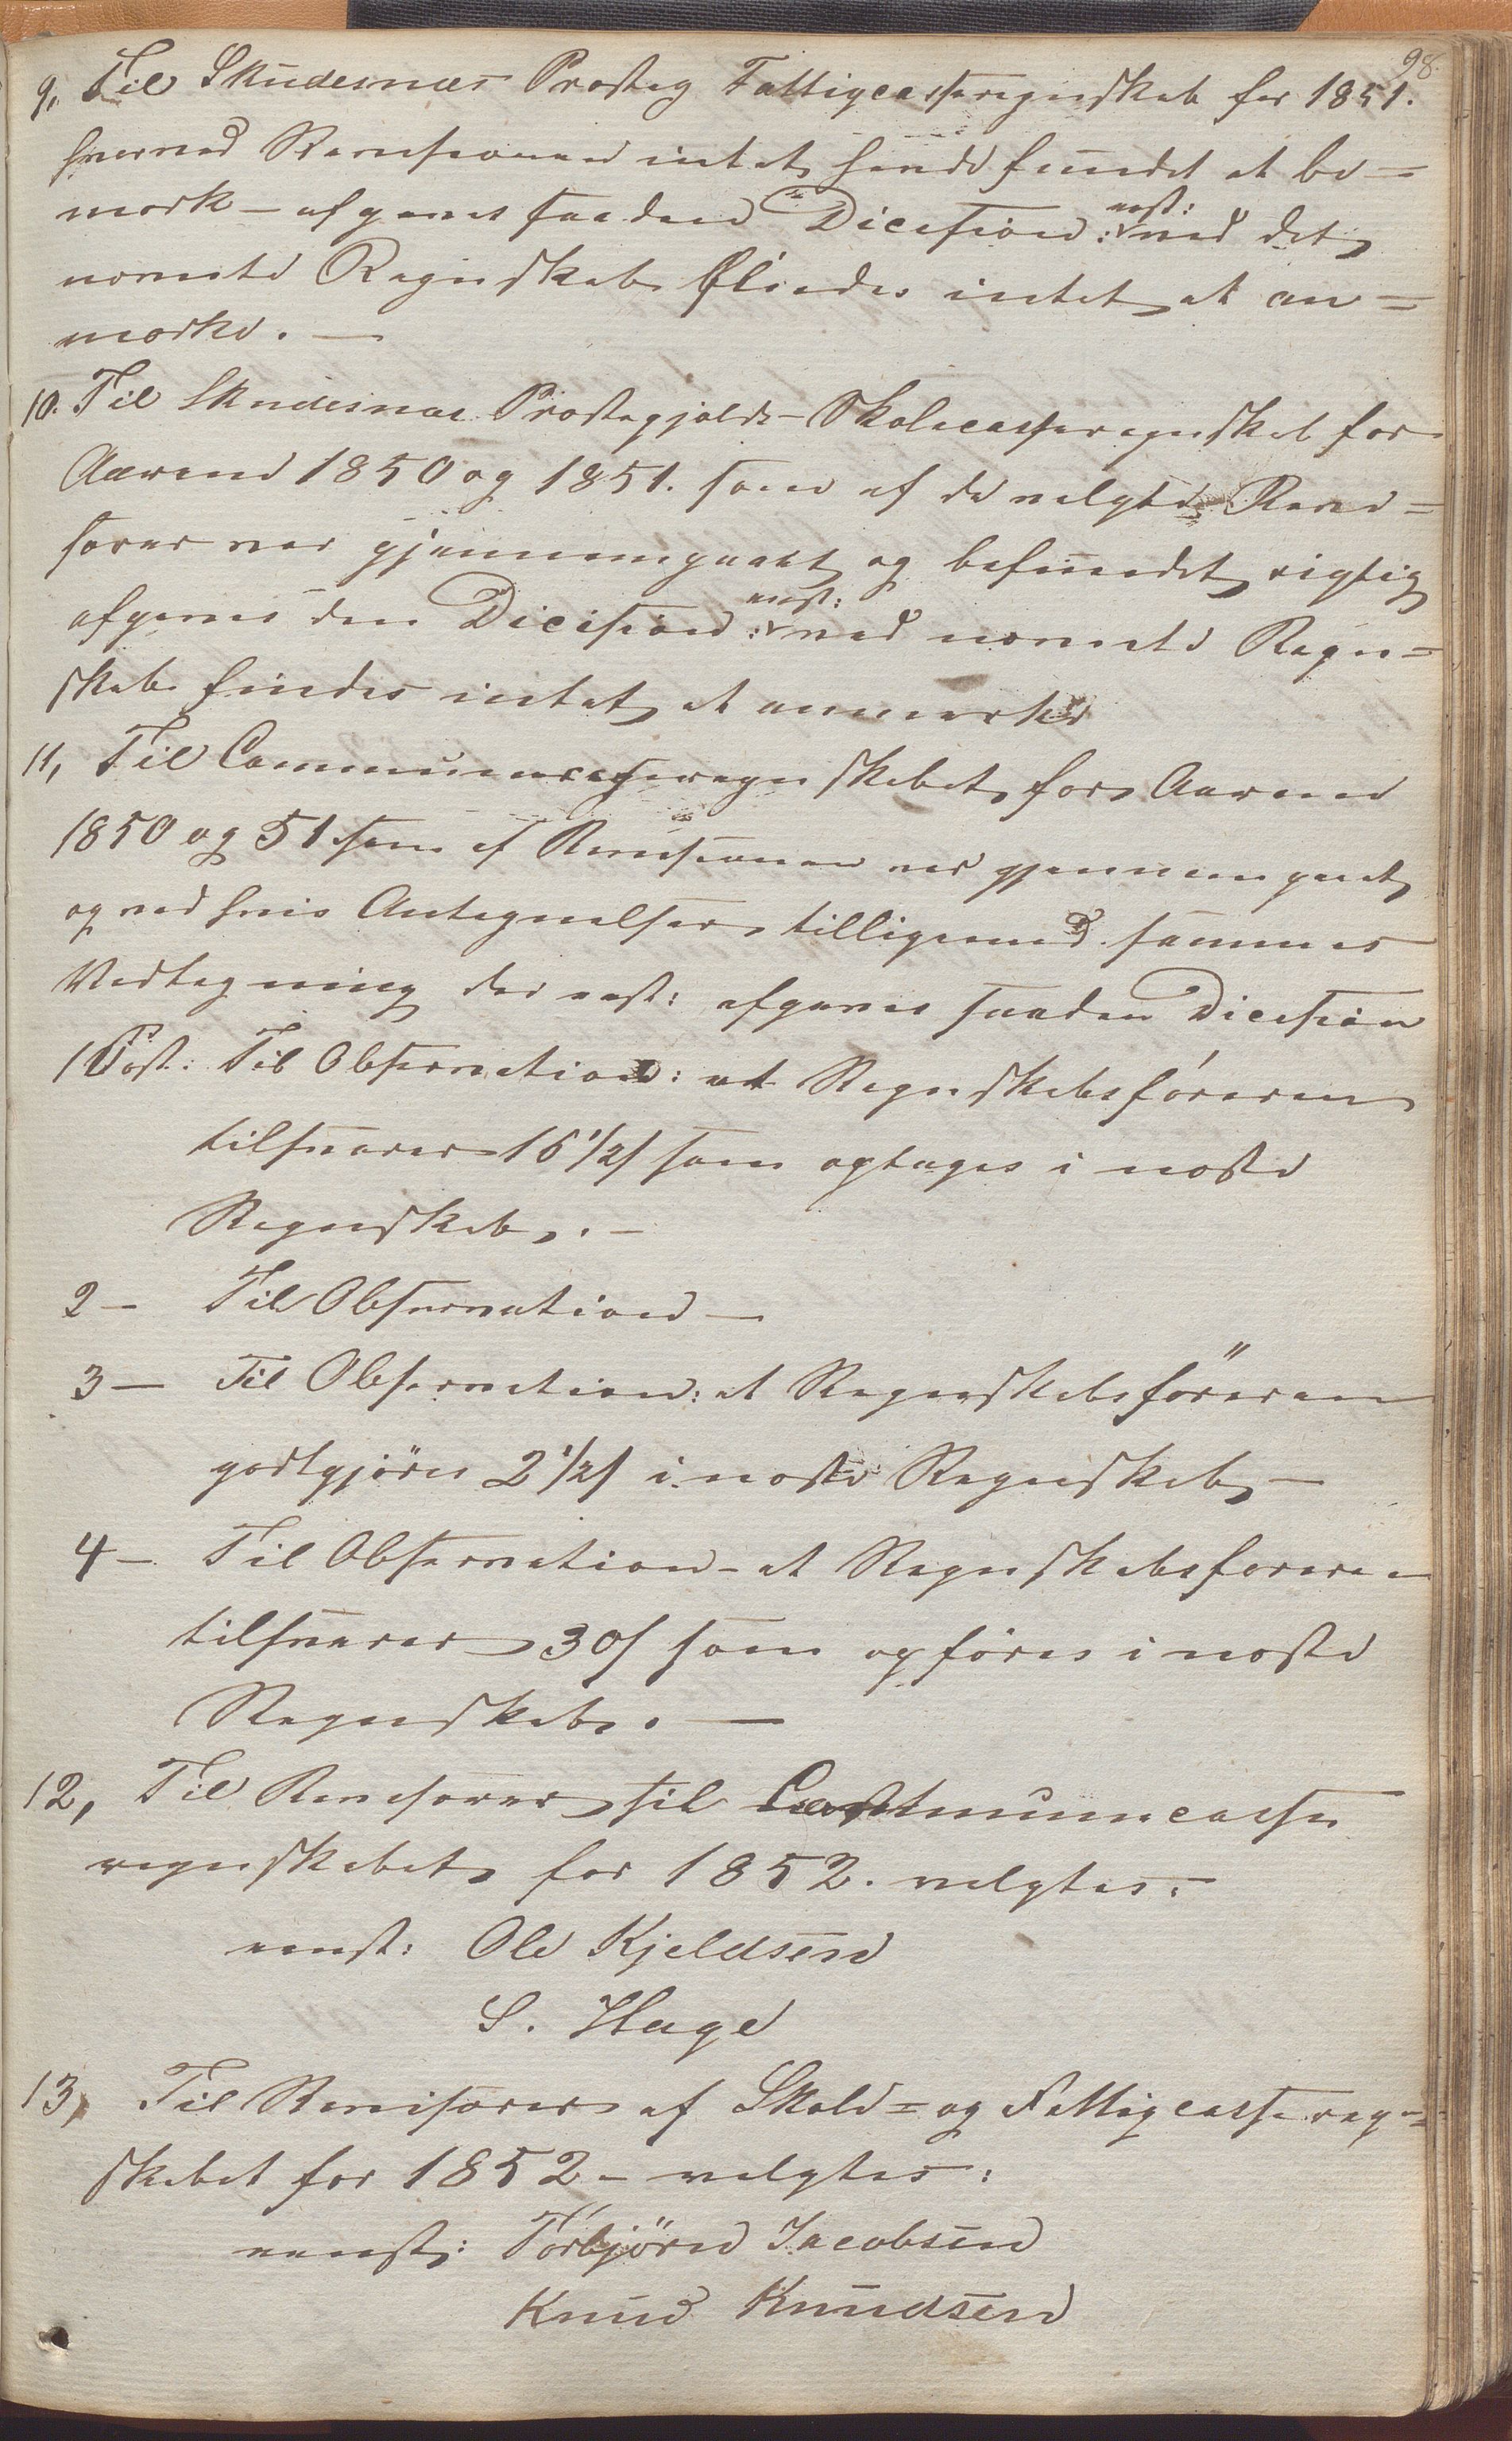 98.
9, Til Skudesnæs Prosteg Fattigcasseregnskab for 1851.
hvorved Revisionen intet havde fundet at be=
mærk - afgaves saadan Dicission: næst: ved det
nævnte Regnskab findes intet at an=
mærke. —
10. Til Skudesnæs Præstegjelds - Skolecasseregnskab for
Aarene 1850 og 1851. som af de valgte Revi=
sorer var gjennemgaaet og befundet rigtig
afgaves den Dicission: næst: ved nævnte Regn=
skab findes intet at anmærke
11, Til Communecasseregnskabet for Aarene
1850 og 51 som af Revisionen var gjennemgaaet
og ved hvis Antegnelser tilligemed sammes
Vedtegning der næst: afgaves saadan Dicission
1 Post: Til Observation: at Regnskabsføreren
tilsvarer 16 1/2 s som optages i næste
Regnskab. -
2 - Til Observation —
3 — Til Observation: at Regnskabsføreren
godtgjøres 2 1/2 s i næste Regnskab —
4 - Til Observation - at Regnskabsføreren
tilsvarer 30 s som opføres i næste
Regnskab. —
12, Til Revisorer til Communecasse
regnskabet for 1852. valgtes:
næst: Ole Kjeldsen
S. Hage
13, Til Revisorer af Skole= og Fattigcasseregn=
skabet for 1852 - valgtes:
næst: Torbjörn Jacobsen
Knud Knudsen